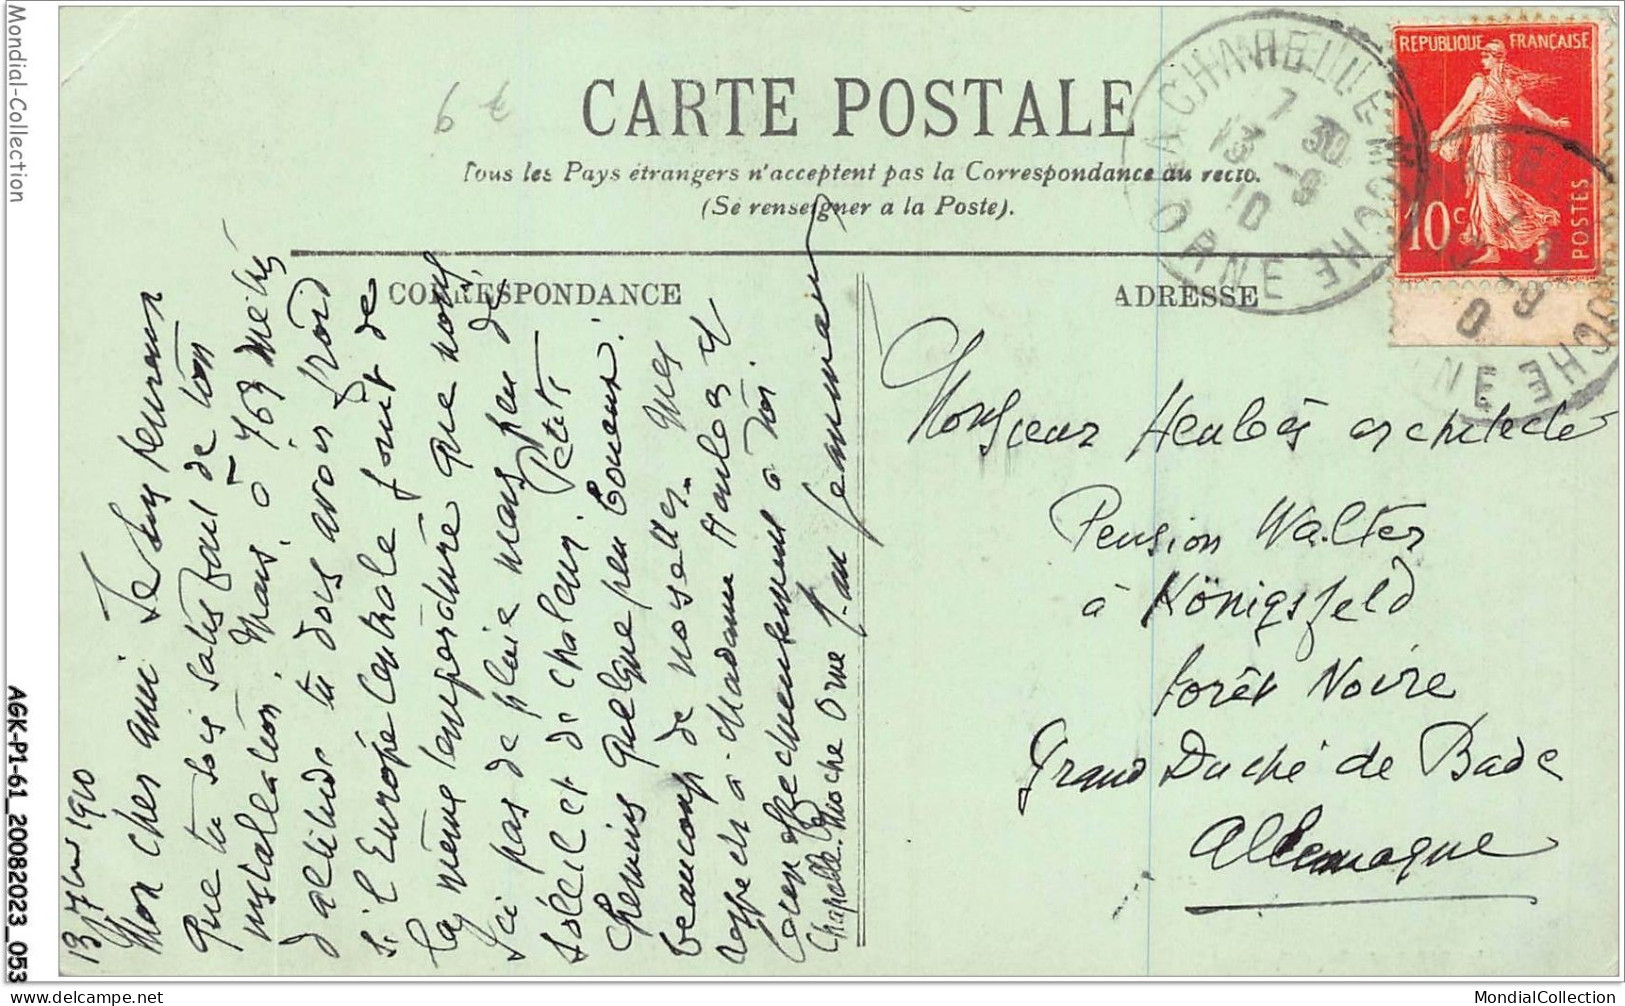 Mondial-Collection
AGK-P1-61_20082023_053
CARTE POSTALE
Tous les Pays étrangers n'acceptent pas la Correspondance au recto.
(Se renseigner a la Poste).
CORRESPONDANCE
ADRESSE
REPUBLIQUE FRANÇAISE
10c
POSTES
LA CHAPELLE MOCHE
ORNE
7 30
13 -9
10
13 7bre 1910
Mon cher ami Je suis heureux
que tu sois satisfait de ton
installation. Mais, à 763 mètres
d'altitude tu dois avoir froid
si l'Europe Centrale jouit de
la même température que nous.
Ici pas de pluie mais peu de
soleil et de chaleur. Petits
chemins quelque peu boueux.
beaucoup de noisettes. Mes
respects à Madame Heulot et
affectueusement à toi.
Chapelle Moche Orne
Monsieur architecte
Pension Walter
à Königsfeld
forêt Noire
Grand Duché de Bade
Allemagne
MondialCollection